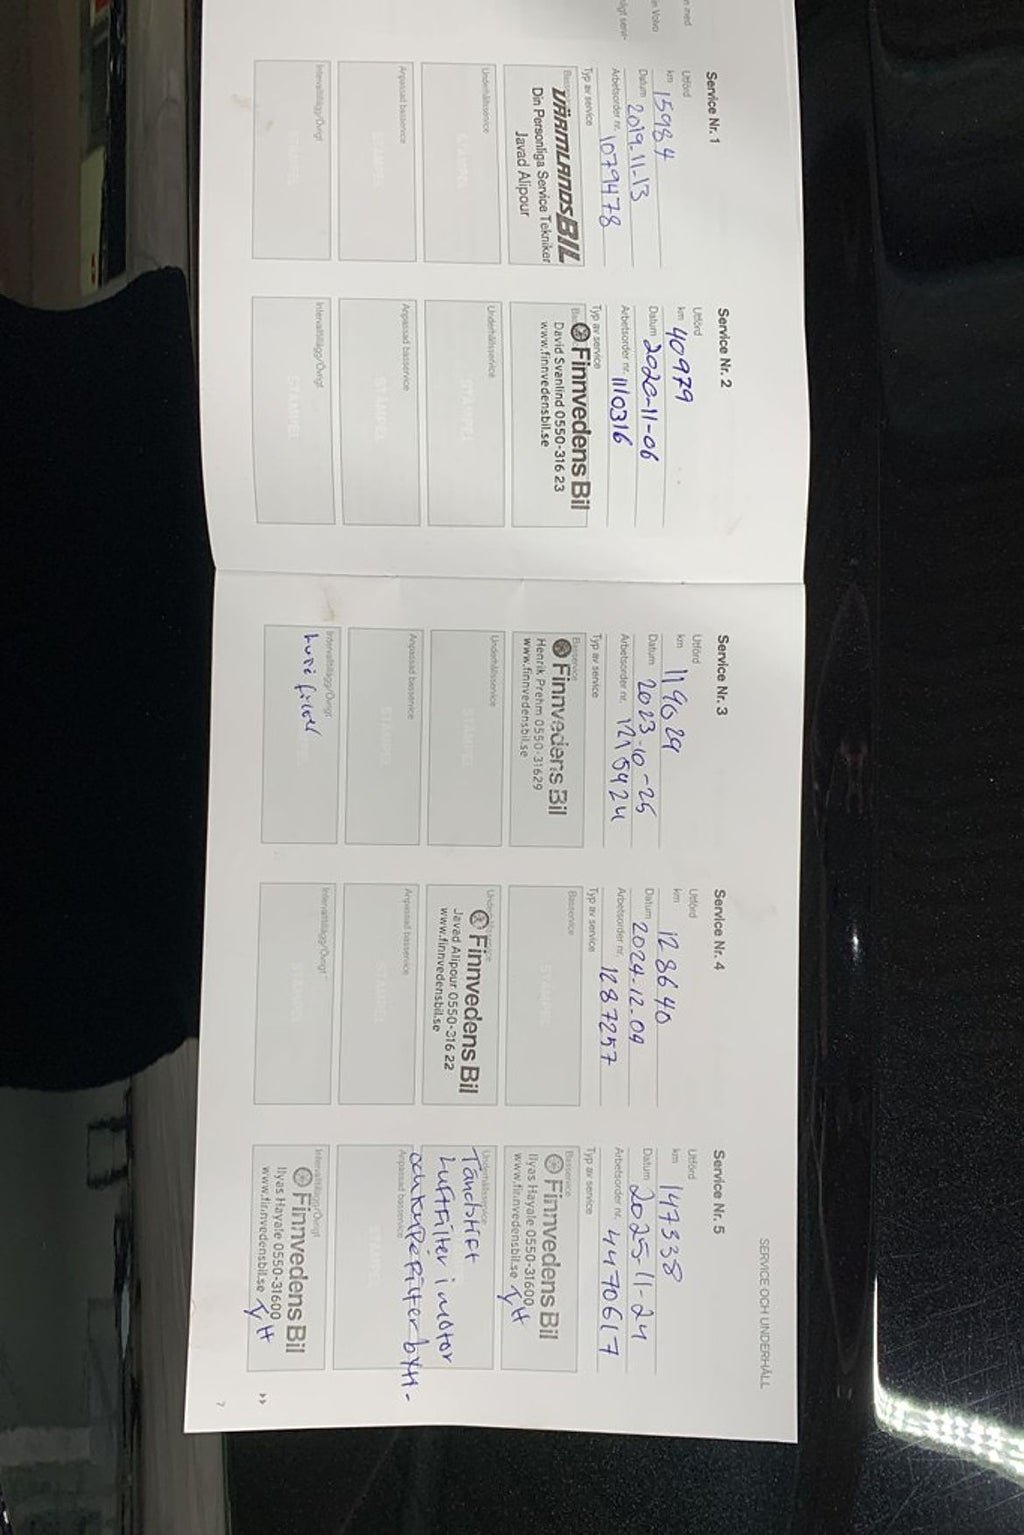 n med
in Volvo
ligt servi-
Service Nr. 1
Utförd
km 15984
Datum 2019-11-13
Arbetsorder nr. 1079478
Typ av service
VÄRMLANDSBIL
Din Personliga Service Tekniker
Javad Alipour
Underhållsservice
STÄMPEL
Anpassad basservice
STÄMPEL
Intervalltillägg/Övrigt
STÄMPEL
Service Nr. 2
Utförd
km 40979
Datum 2020-11-06
Arbetsorder nr. 1110316
Typ av service
Finnvedens Bil
David Svanlind 0550-316 23
www.finnvedensbil.se
Underhållsservice
STÄMPEL
Anpassad basservice
STÄMPEL
Intervalltillägg/Övrigt
STÄMPEL
SERVICE OCH UNDERHÅLL
Service Nr. 3
Utförd
km 119029
Datum 2023-10-25
Arbetsorder nr. 1215424
Typ av service
Basservice
Finnvedens Bil
Henrik Prehm 0550-31629
www.finnvedensbil.se
Underhållsservice
STÄMPEL
Anpassad basservice
STÄMPEL
Intervalltillägg/Övrigt
Service Nr. 4
Utförd
km 128640
Datum 2024-12-09
Arbetsorder nr. 1287257
Typ av service
Basservice
STÄMPEL
Underhållsservice
Finnvedens Bil
Javad Alipour 0550-316 22
www.finnvedensbil.se
Anpassad basservice
STÄMPEL
Intervalltillägg/Övrigt
STÄMPEL
Service Nr. 5
Utförd
km 147338
Datum 2025-11-24
Arbetsorder nr. 4470617
Typ av service
Basservice
Finnvedens Bil
Ilyas Hayale 0550-31600
www.finnvedensbil.se IH
Underhållsservice
Tändstift
Luftfilter i motor
och kupefilter bytt-
Anpassad basservice
STÄMPEL
Intervalltillägg/Övrigt
Finnvedens Bil
Ilyas Hayale 0550-31600
www.finnvedensbil.se IH
>>
7